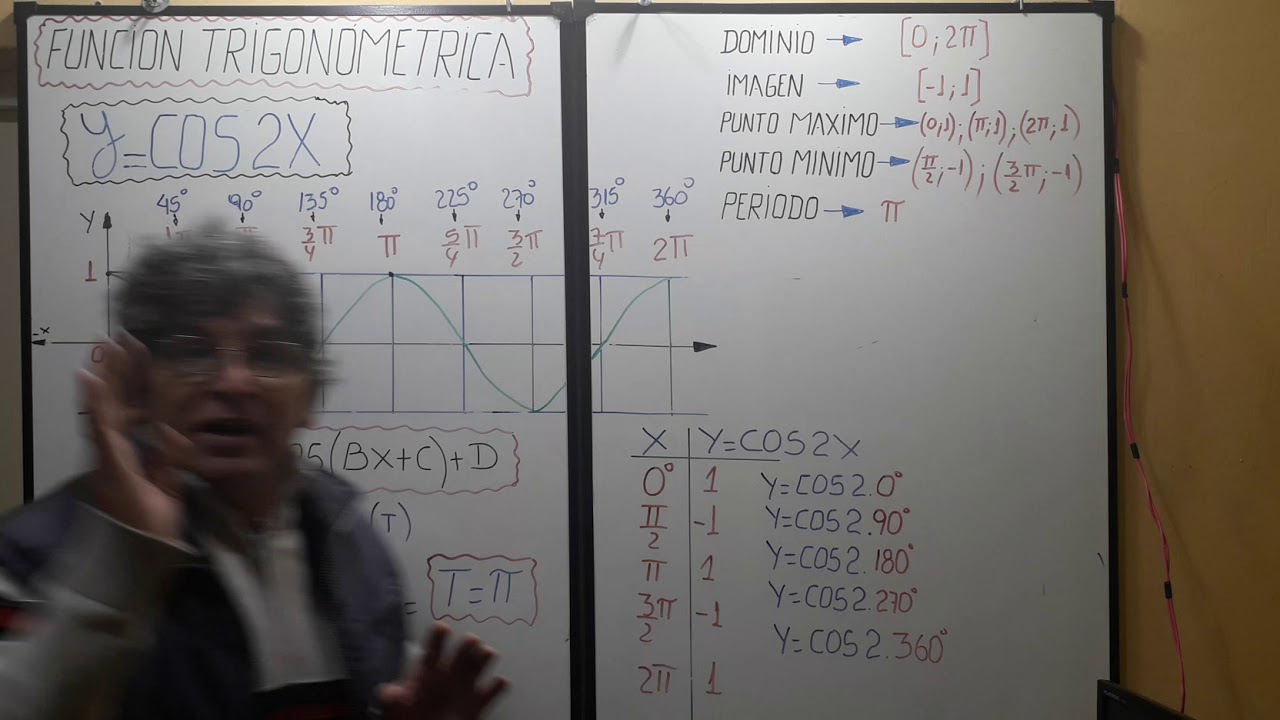 FUNCIÓN TRIGONÓMETRICA
y=COS2X
45° 90° 135° 180° 225° 270° 315° 360°
3/4 π π 5/4 π 3/2 π 7/4 π 2π
Y
1
x
0
(BX+C)+D
(T)
= T=π
DOMINIO → [0;2π]
IMAGEN → [-1;1]
PUNTO MAXIMO → (0;1);(π;1);(2π;1)
PUNTO MINIMO → (π/2;-1);(3/2 π;-1)
PERIODO → π
X Y=COS2X
0° 1 Y=COS2.0°
π/2 -1 Y=COS2.90°
π 1 Y=COS2.180°
3π/2 -1 Y=COS2.270°
2π 1 Y=COS2.360°